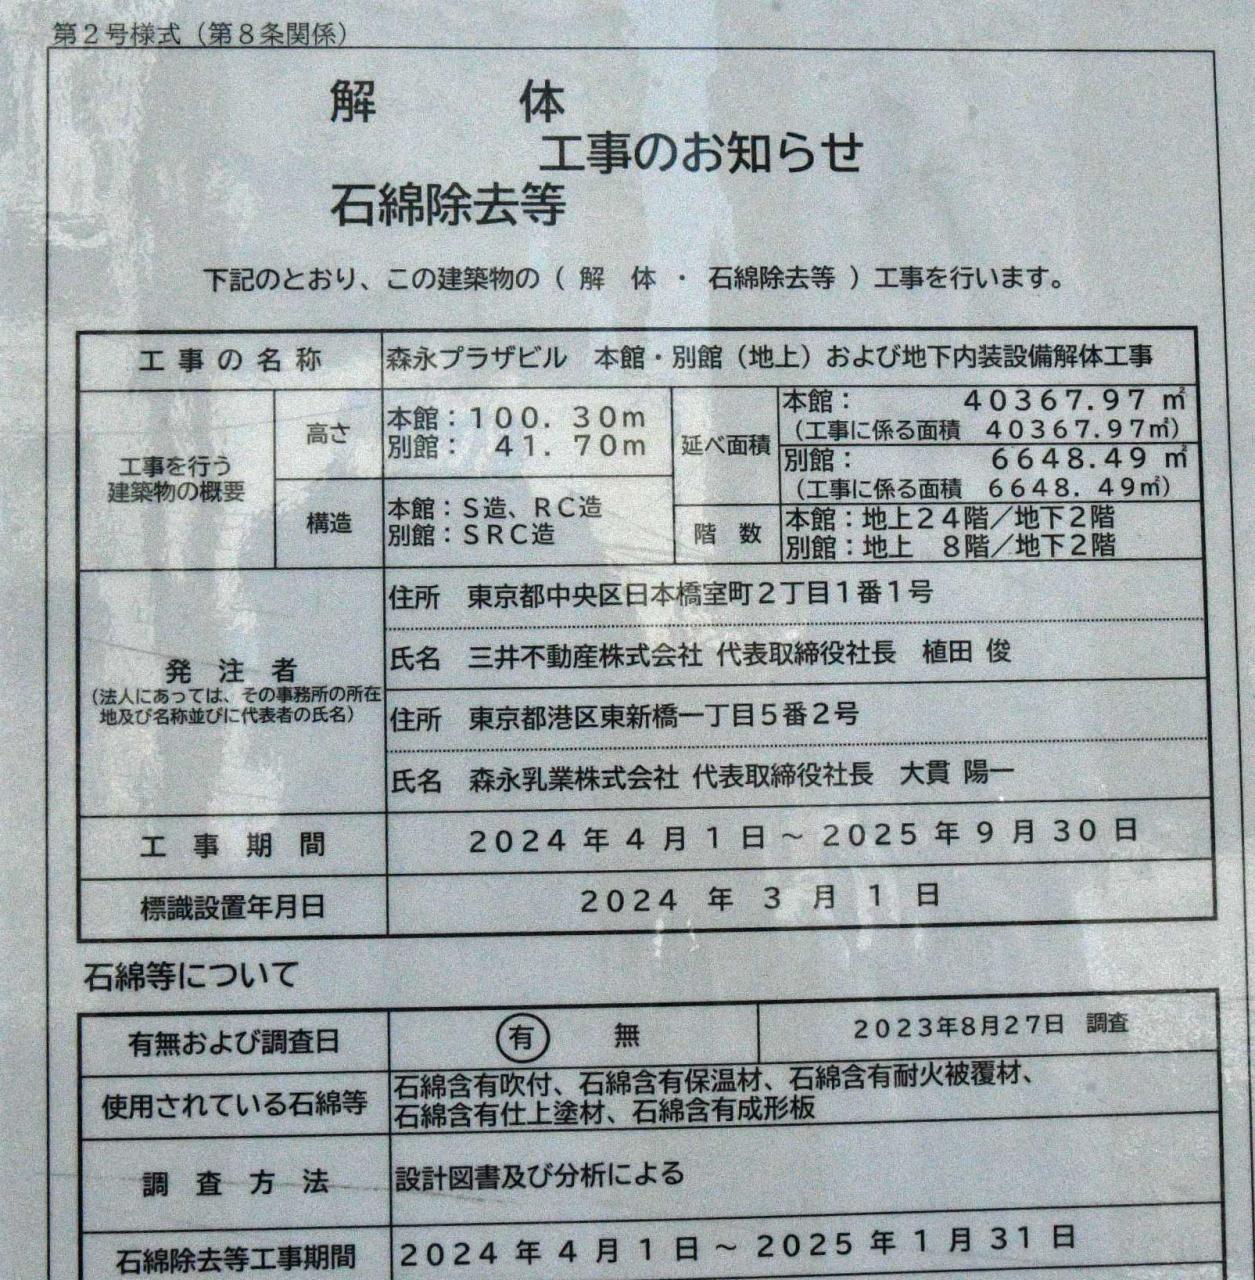 第２号様式（第８条関係）
解　体
工事のお知らせ
石綿除去等
下記のとおり、この建築物の（ 解　体 ・ 石綿除去等 ）工事を行います。
工事の名称　森永プラザビル　本館・別館（地上）および地下内装設備解体工事
工事を行う
建築物の概要
高さ
本館：１００．３０ｍ
別館：　４１．７０ｍ
延べ面積
本館：　４０３６７.９７ ㎡
（工事に係る面積　４０３６７.９７㎡）
別館：　６６４８.４９ ㎡
（工事に係る面積　６６４８．４９㎡）
構造
本館：Ｓ造、ＲＣ造
別館：ＳＲＣ造
階　数
本館：地上２４階／地下２階
別館：地上　８階／地下２階
発　注　者
（法人にあっては、その事務所の所在
地及び名称並びに代表者の氏名）
住所　東京都中央区日本橋室町２丁目１番１号
氏名　三井不動産株式会社 代表取締役社長　植田 俊
住所　東京都港区東新橋一丁目５番２号
氏名　森永乳業株式会社 代表取締役社長　大貫 陽一
工　事　期　間　２０２４ 年 ４ 月 １ 日 ～ ２０２５ 年 ９ 月 ３０ 日
標識設置年月日　２０２４ 年 ３ 月 １ 日
石綿等について
有無および調査日　有　無　２０２３年８月２７日　調査
使用されている石綿等
石綿含有吹付、石綿含有保温材、石綿含有耐火被覆材、
石綿含有仕上塗材、石綿含有成形板
調　査　方　法　設計図書及び分析による
石綿除去等工事期間　２０２４ 年 ４ 月 １ 日 ～ ２０２５ 年 １ 月 ３１ 日